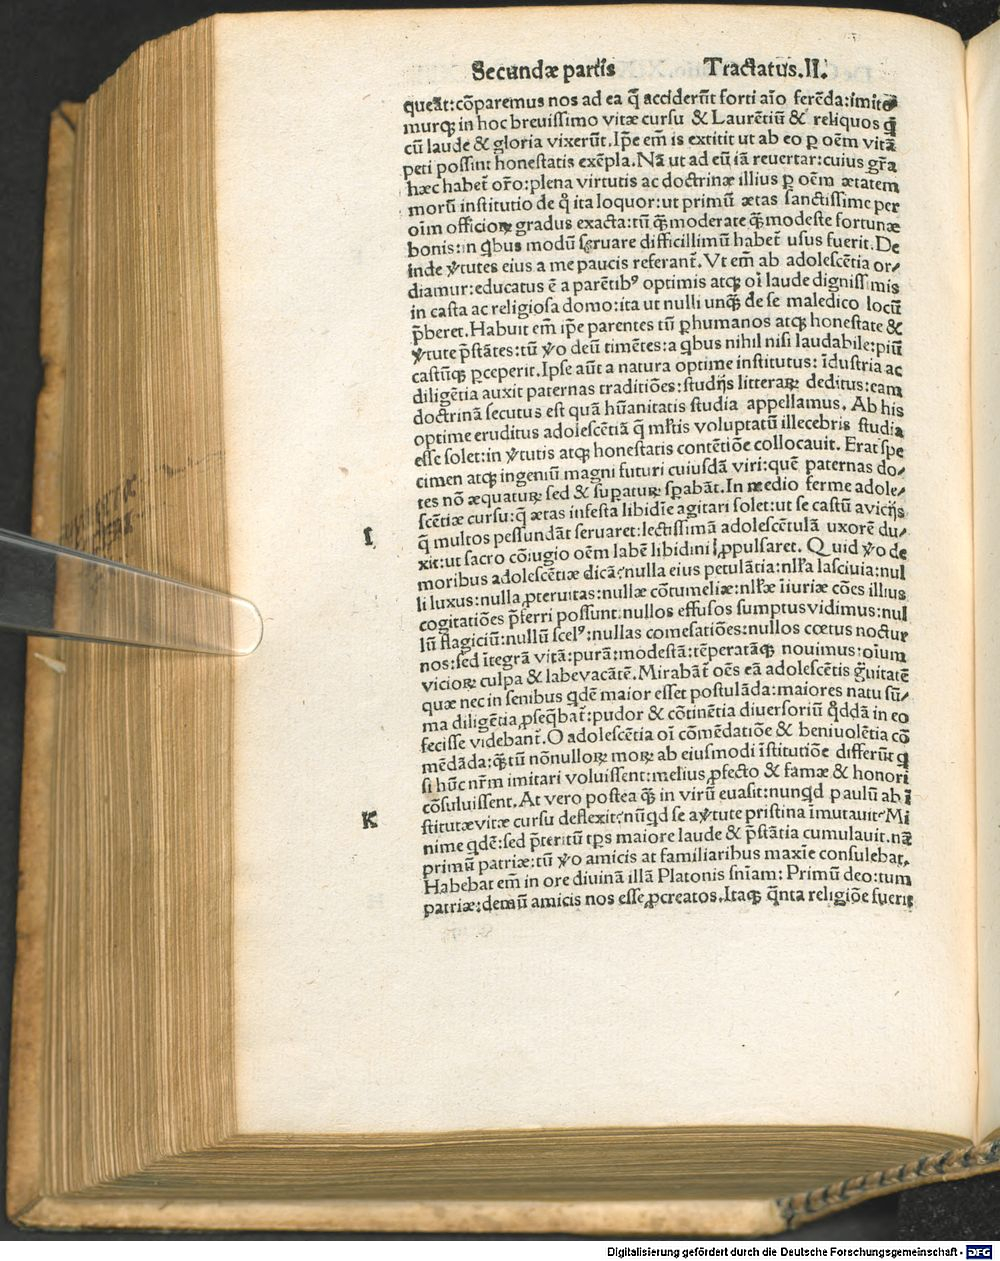 Secundæ partis Tractatus.II.
queāt:cōparemus nos ad ea q̄ acciderūt forti aīo ferēda:imite
murqꝫ in hoc breuissimo vitæ cursu & Laurētiū & reliquos q̄
cū laude & gloria vixerūt.Ip̄e em̄ is extitit ut ab eo ꝑ oēm vitā
peti possint honestatis exēpla.Nā ut ad eū iā reuertar:cuius gr̄a
hæc habet̄ or̄o:plena virtutis ac doctrinæ illius ꝑ oēm ætatem
morū institutio de q̄ ita loquor:ut primū ætas sanctissime per
oīm officioꝝ gradus exacta:tū q̄ꝫ moderate q̄ꝫ modeste fortunæ
bonis:in qͥbus modū seruare difficillimū habet̄ usus fuerit.De
inde v̓tutes eius a me paucis referant̄.Vt em̄ ab adolescētia or/
diamur:educatus ē a parētibꝰ optimis atqꝫ oī laude dignissimis
in casta ac religiosa domo:ita ut nulli unq̄ꝫ de se maledico locū
p̄beret.Habuit em̄ ip̄e parentes tū ꝑhumanos atqꝫ honestate &
v̓tute p̄stātes:tū v̓o deū timētes:a qͥbus nihil nisi laudabile:piū
castūqꝫ ꝑceperit.Ipse aūt a natura optime institutus:īdustria ac
diligētia auxit paternas traditiōes:studijs litteraꝝ deditus:eam
doctrinā secutus est quā hūanitatis studia appellamus. Ab his
optime eruditus adolescētiā q̄ ml̄tis voluptatū illecebris studia
esse solet:in v̓tutis atqꝫ honestatis contētiōe collocauit. Erat spe
cimen atqꝫ ingeniū magni futuri cuiusdā viri:quē paternas do/
tes nō æquaturꝝ sed & suꝑaturꝝ sꝑabāt.In medio ferme adole/
scētiæ cursu:q̄ ætas infesta libidīe agitari solet:ut se castū a vicijs
q̄ multos pessundāt seruaret:lectissimā adolescētulā uxorē du/
I
xit:ut sacro cōiugio oēm labē libidini ꝓpulsaret. Quid v̓o de
moribus adolescētiæ dicā:nulla eius petulātia:nll̄a lasciuia:nul
li luxus:nulla ꝓteruitas:nullæ cōtumeliæ:nll̄æ īiuriæ cōes illius
cogitatiōes p̄ferri possunt:nullos effusos sumptus vidimus:nul
lū flagiciū:nullū scelꝰ:nullas comesatiōes:nullos cœtus noctur
nos:sed ītegrā vitā:purā:modestā:tēperatāqꝫ nouimus:oīum
vicioꝝ culpa & labe vacātē.Mirabāt̄ oēs eā adolescētis gͣuitatē
quæ nec in senibus qͥdē maior esset postulāda:maiores natu sū/
ma diligētia ꝓseq̄bat̄:pudor & cōtinētia diuersoriū qͦddā in eo
fecisse videbant̄.O adolescētia oī cōmēdatiōe & beniuolētia cō
mēdāda:q̄ꝫtū nōnulloꝝ moꝝ ab eiusmodi īstitutiōe differūt q̄
si hūc nr̄m imitari voluissent:melius ꝓfecto & famæ & honori
cōsuluissent.At vero postea q̄ꝫ in virū euasit:nunqͥd paulū ab ī
K
stitutæ vitæ cursu deflexit:nūqͥd se a v̓tute pristina īmutauit?Mi
nime qͥdē:sed p̄teritū tp̄s maiore laude & p̄stātia cumulauit.nā
primū patriæ:tū v̓o amicis at familiaribus maxīe consulebat.
Habebat em̄ in ore diuinā illā Platonis sn̄iam:Primū deo:tum
patriæ:demū amicis nos esse ꝓcreatos.Itaqꝫ q̄nta religiōe fuerit
Digitalisierung gefördert durch die Deutsche Forschungsgemeinschaft - DFG